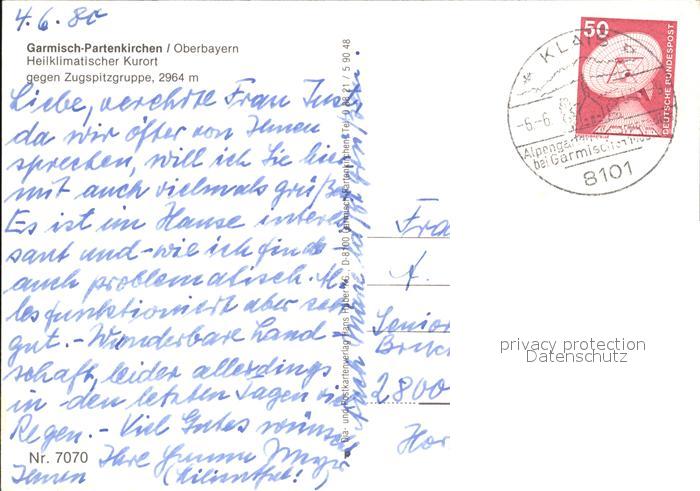 4.6.80
Garmisch-Partenkirchen / Oberbayern
Heilklimatischer Kurort
gegen Zugspitzgruppe, 2964 m
Liebe, verehrte Frau
da wir öfter von Ihnen
sprechen, will ich Sie hier
mit auch vielmals grüßen
Es ist im Hause interes
sant und - wie ich finde -
auch problematisch. Al
les funktioniert aber sehr
gut. - Wunderbare Land
schaft, leider allerdings
in den letzten Tagen viel
Regen. - Viel Gutes wünscht
Ihnen Ihre
(Lilienthal!)
Nr. 7070
Dia- und Postkartenverlag Hans Huber KG., D-8100 Garmisch-Partenkirchen, Tel. 0 88 21 / 5 90 48
50
DEUTSCHE BUNDESPOST
KLAIS
-6.-6.
bei Garmisch-
8101
Fra
A.
Senior
2800
Hor
privacy protection
Datenschutz